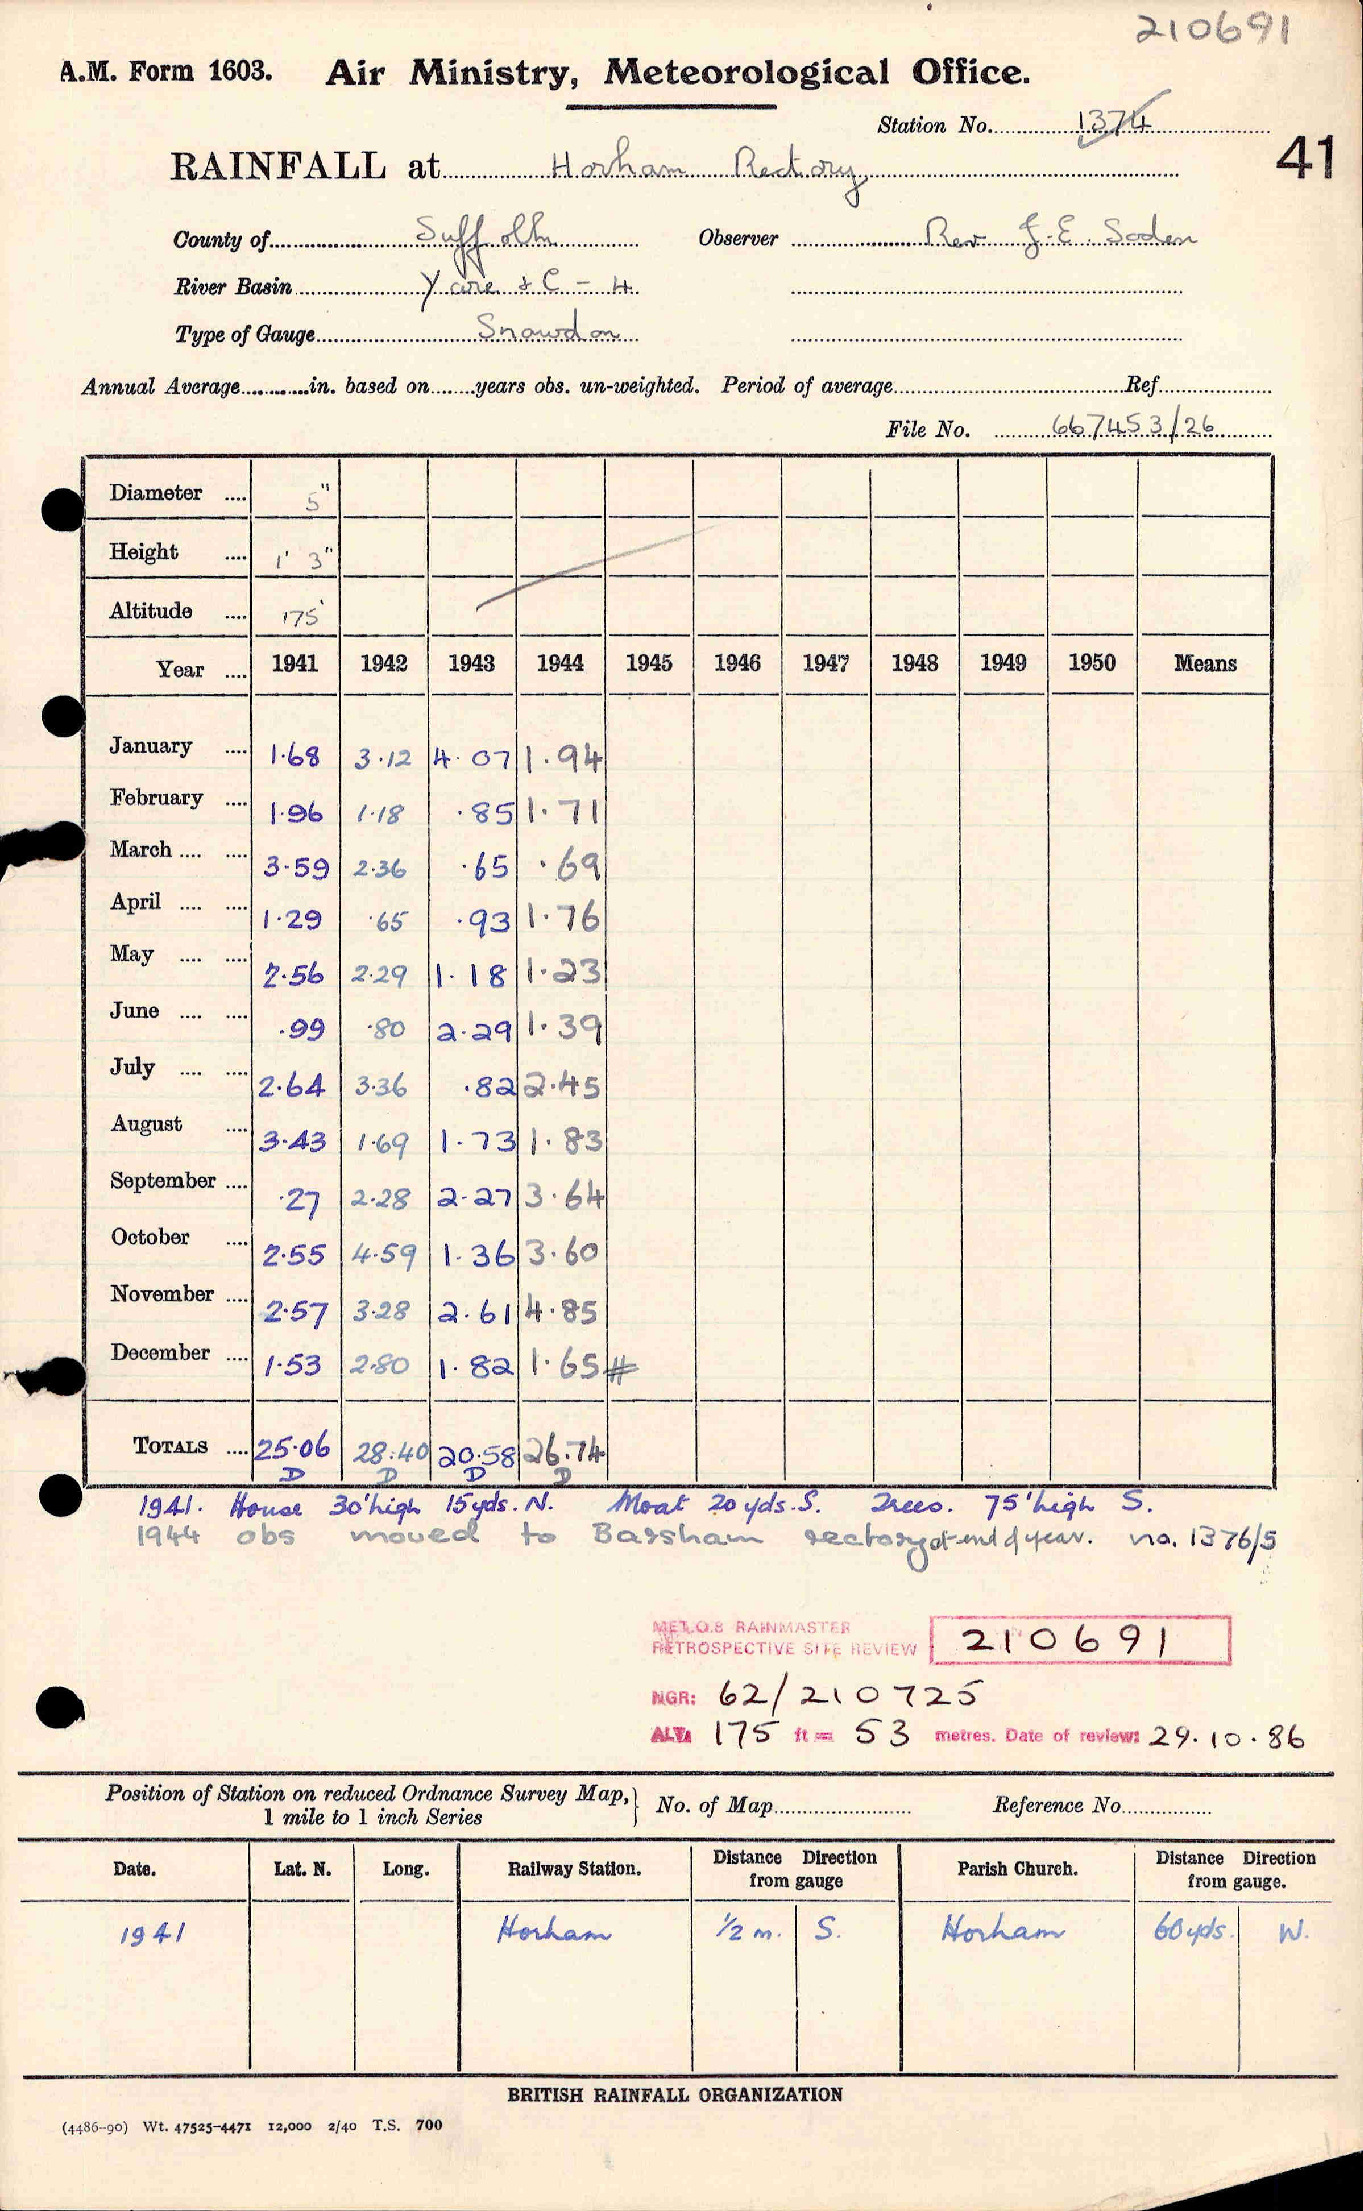 210691
A.M. Form 1603. Air Ministry, Meteorological Office.
Station No. 1374
41
RAINFALL at Horham Rectory
County of Suffolk Observer Rev J.E. Soden
River Basin Yare & C - 4
Type of Gauge Snowdon
Annual Average in. based on years obs. un-weighted. Period of average Ref.
File No. 667453/26
Diameter .... 5"
Height .... 1' 3"
Altitude .... 175'
Year .... 1941 1942 1943 1944 1945 1946 1947 1948 1949 1950 Means
January .... 1.68 3.12 4.07 1.94
February .... 1.96 1.18 .85 1.71
March .... .... 3.59 2.36 .65 .69
April .... .... 1.29 .65 .93 1.76
May .... .... 2.56 2.29 1.18 1.23
June .... .... .99 .80 2.29 1.39
July .... .... 2.64 3.36 .82 2.45
August .... 3.43 1.69 1.73 1.83
September .... .27 2.28 2.27 3.64
October .... 2.55 4.59 1.36 3.60
November .... 2.57 3.28 2.61 4.85
December .... 1.53 2.80 1.82 1.65 #
TOTALS .... 25.06 28.40 20.58 26.74
D D D D
1941. House 30' high 15 yds. N. Moat 20 yds. S. Trees. 75' high S.
1944 obs moved to Barsham rectory at end of year. no. 1376/5
MET.O.8 RAINMASTER
RETROSPECTIVE SITE REVIEW 210691
NGR: 62/210725
ALT: 175 ft = 53 metres. Date of review: 29.10.86
Position of Station on reduced Ordnance Survey Map, } No. of Map Reference No.
1 mile to 1 inch Series
Date. Lat. N. Long. Railway Station. Distance Direction from gauge Parish Church. Distance Direction from gauge.
1941 Horham 1/2 m. S. Horham 60 yds. W.
BRITISH RAINFALL ORGANIZATION
(4486-90) Wt. 47525-4471 12,000 2/40 T.S. 700